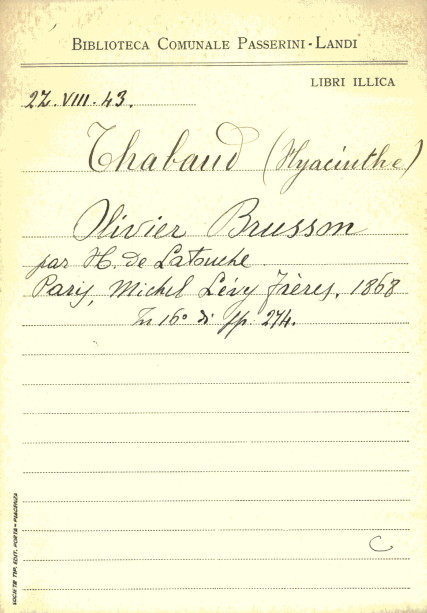 BIBLIOTECA COMUNALE PASSERINI-LANDI
LIBRI ILLICA
22.VIII.43.
Thabaud (Hyacinthe)
Olivier Brusson
par H. de Latouche
Paris, Michel Lévy Frères, 1868
In 16° di pp. 274.
C
SOCIETÀ TIP. EDIT. PORTA - PIACENZA